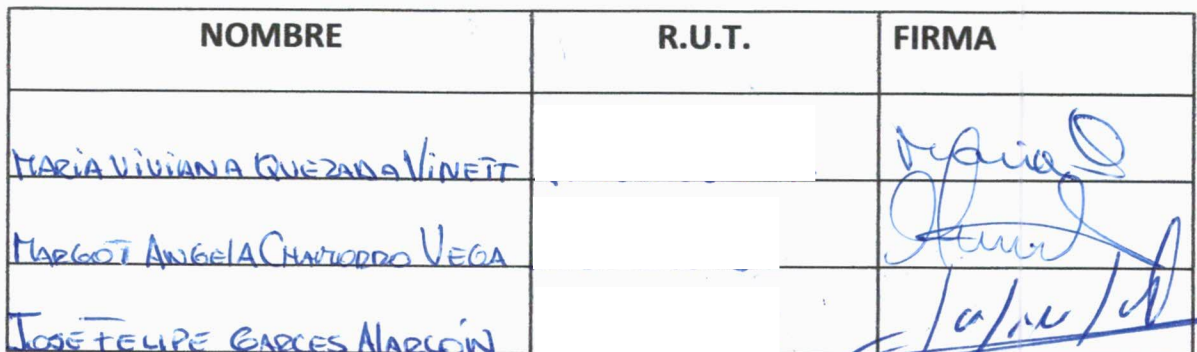 NOMBRE R.U.T. FIRMA
MARIA VIVIANA QUEZADA VINETT Maria Q
MARGOT ANGELA CHAMORRO VEGA
JOSE FELIPE GARCES ALARCÓN